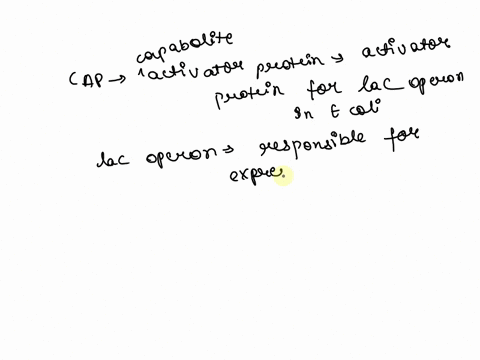 capabolite
CAP → activator protein → activator
protein for lac operon
in E coli
lac operon → responsible for
expre